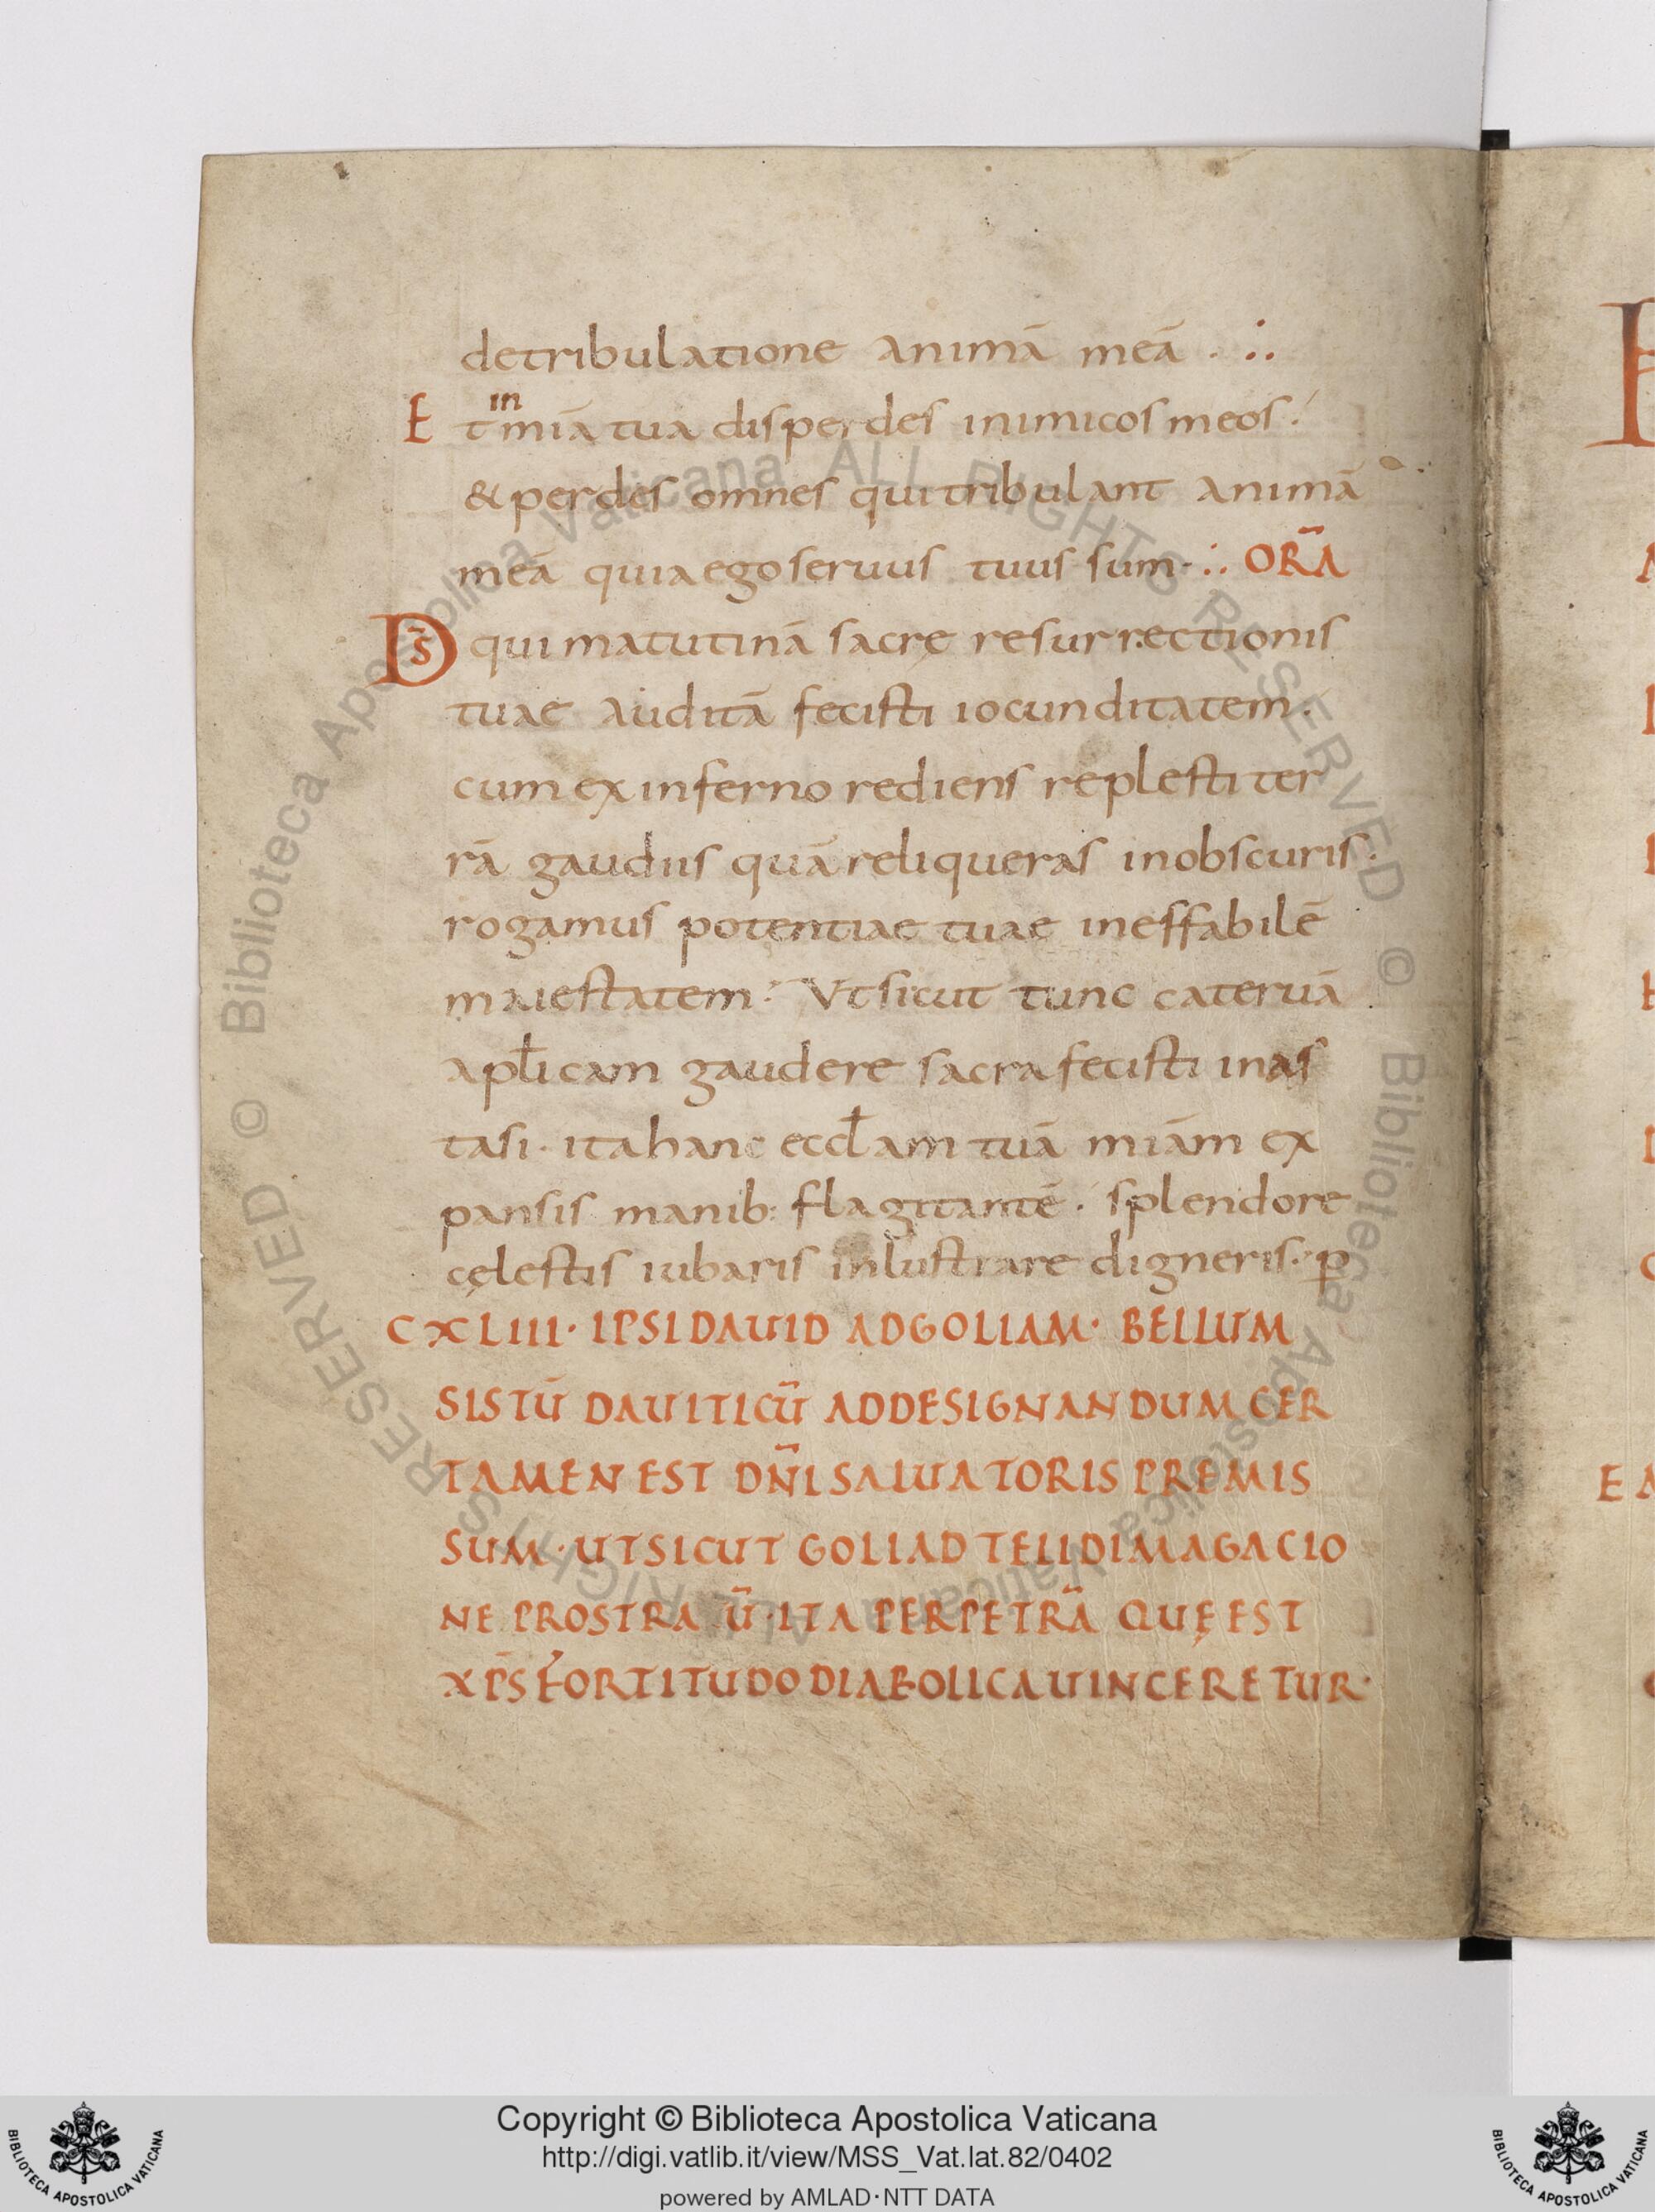 detribulatione animā meā . ∴
E t in miā tua disperdes inimicos meos .
& perdes omnes qui tribulant animā
meā quia ego seruus tuus sum ∴ ORĀ
D̄S qui matutinā sacrę resurrectionis
tuae auditā fecisti iocunditatem .
cum ex inferno rediens replesti ter
rā gaudiis quā reliqueras in obscuris .
rogamus potentiae tuae ineffabilē
maiestatem . Vt sicut tunc cateruā
apl̄icam gaudere sacra fecisti in as
tasi . ita hanc eccl̄am tuā miām ex
pansis manib: flagitantē . splendore
cęlestis iubaris inlustrare digneris . p̄
CXLIII · IPSI DAUID AD GOLIAM · BELLUM
SISTŪ DAUITICŪ AD DESIGNANDUM CER
TAMEN EST DN̄I SALUATORIS PREMIS
SUM · UT SICUT GOLIAD TELI DIMAGACIO
NE PROSTRA Ū · ITA PER PETRĀ QUĘ EST
XP̄S FORTITUDO DIABOLICA UINCERETUR ·
Copyright © Biblioteca Apostolica Vaticana
http://digi.vatlib.it/view/MSS_Vat.lat.82/0402
powered by AMLAD·NTT DATA
BIBLIOTECA APOSTOLICA VATICANA
BIBLIOTECA APOSTOLICA VATICANA
© Biblioteca Apostolica Vaticana ALL RIGHTS RESERVED © Biblioteca Apostolica Vaticana ALL RIGHTS RESERVED